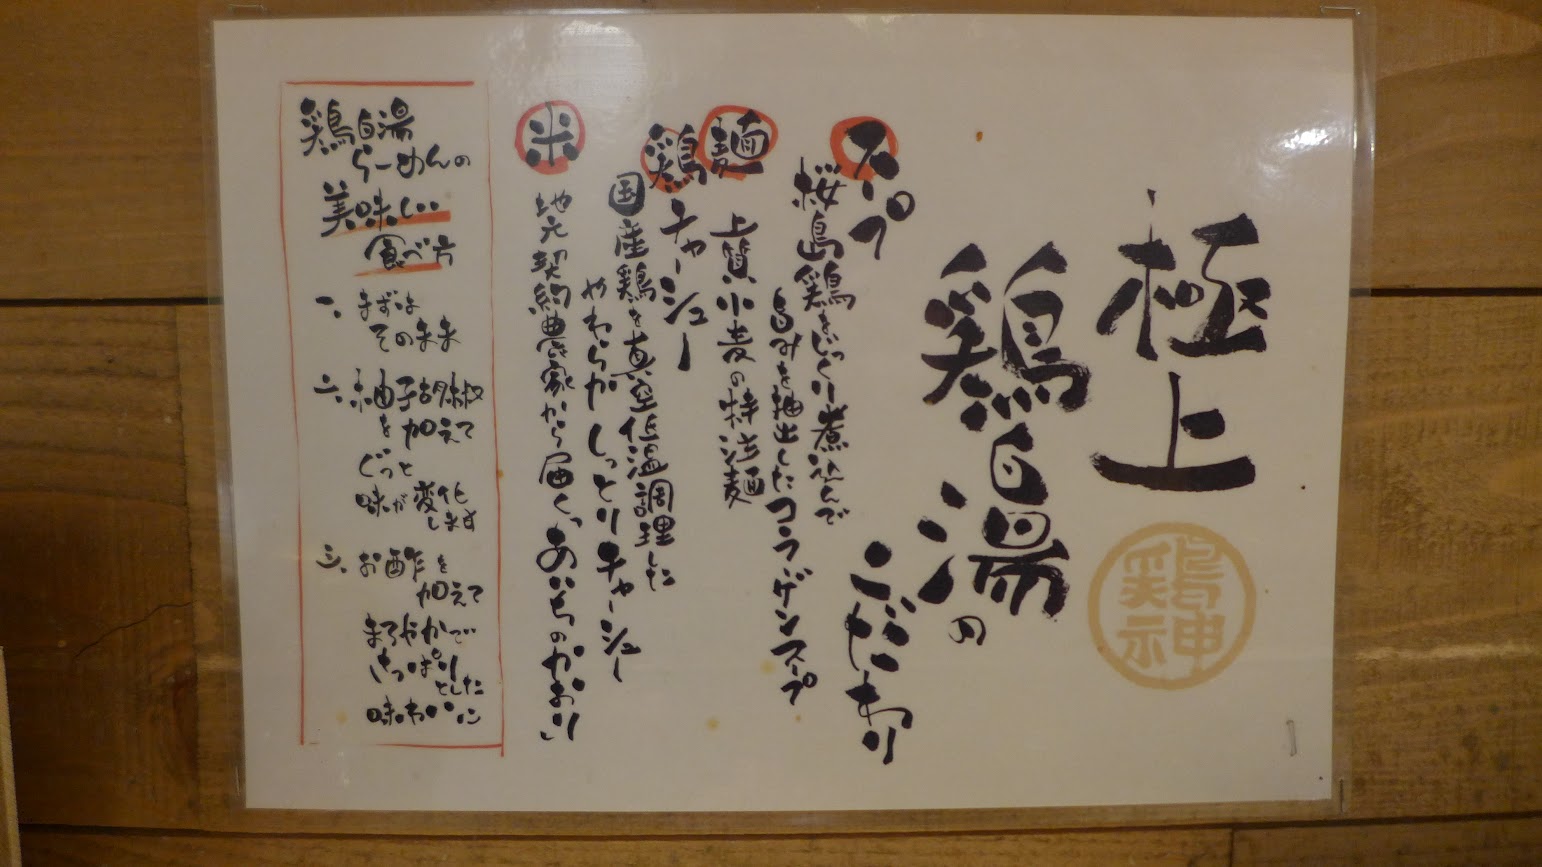 極上
鶏白湯の
こだわり
鶏神
スープ
桜島鶏をじっくり煮込んで
旨みを抽出したコラーゲンスープ
麺
上質小麦の特注麺
鶏チャーシュー
国産鶏を真空低温調理した
やわらか しっとりチャーシュー
米
地元契約農家から届く、あいちのかおり
鶏白湯
らーめんの
美味しい
食べ方
一、まずは
そのまま
二、柚子胡椒
を加えて
ぐっと
味が変化
します
三、お酢を
加えて
まろやかで
さっぱり
とした
味わいに